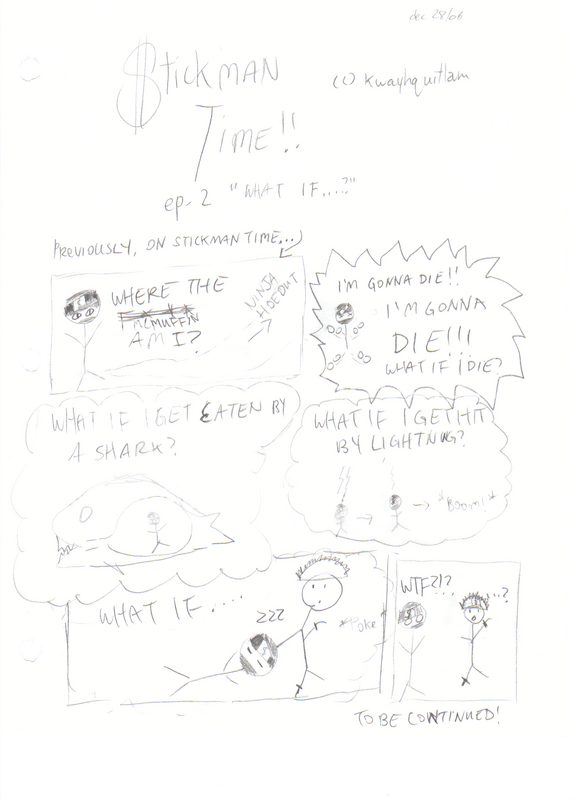 dec 28/06
$tickman
Time!!
(c) Kwayhquitlam
ep. 2 "WHAT IF....?"
PREVIOUSLY, ON STICKMAN TIME...
WHERE THE
MCMUFFIN
AM I?
NINJA
HIDEOUT
I'M GONNA DIE!!
I'M GONNA
DIE!!!
WHAT IF I DIE?
WHAT IF I GET EATEN BY
A SHARK?
WHAT IF I GET HIT
BY LIGHTNING?
*Boom!*
WHAT IF....
ZZZ
*Poke*
WTF?!?
...?
TO BE CONTINUED!